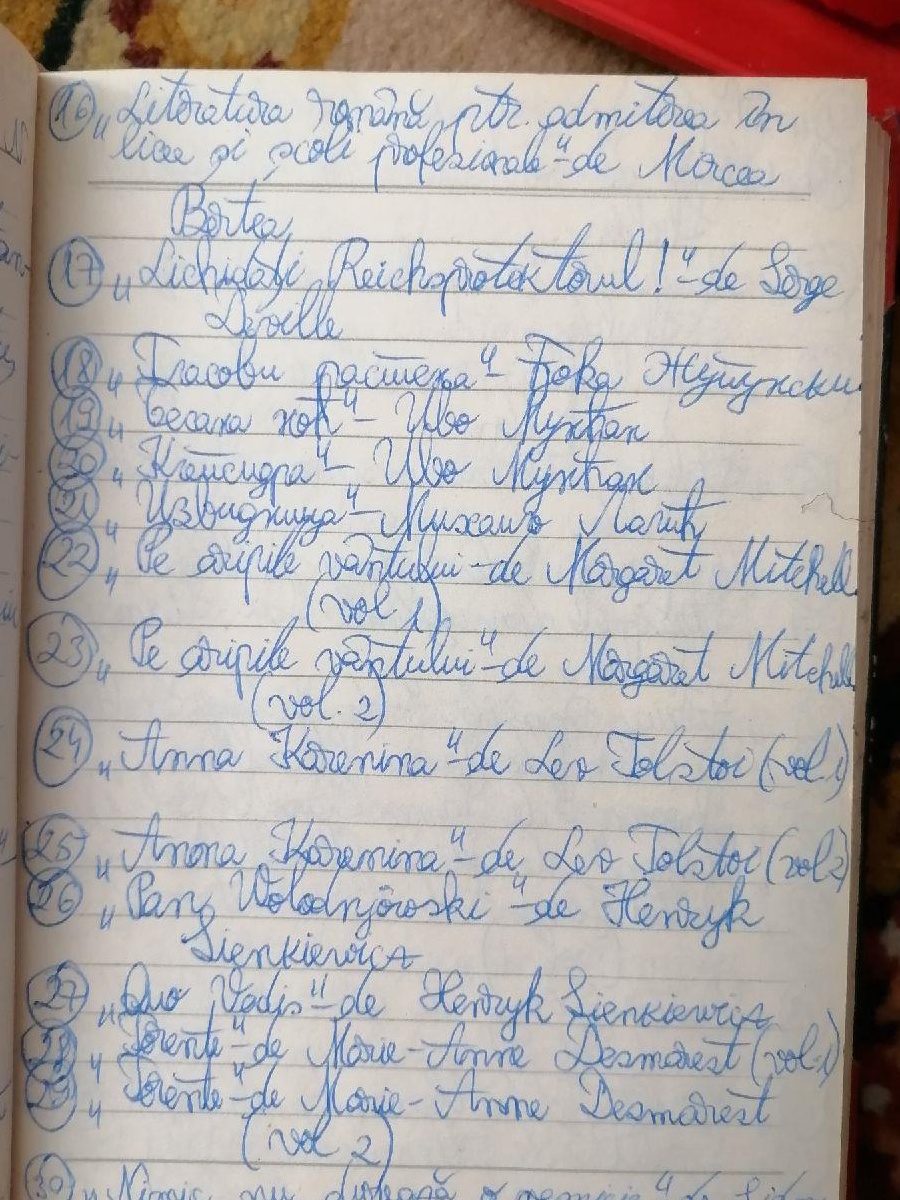 16 „Literatura română ptr. admiterea în
licee și școli profesionale" - de Mircea
Bertea
17 „Lichidați Reichsprotektorul!" - de Serge
Deville
18 „Гласови растења" - Ђока Жујунски
19 „Бесана ноћ" - Иво Мунћан
20 „Клепсидра" - Иво Мунћан
21 „Извидница" - Михаило Лалић
22 „Pe aripile vântului - de Margaret Mitchell
(vol 1)
23 „Pe aripile vântului" - de Margaret Mitchell
(vol. 2)
24 „Anna Karenina" - de Leo Tolstoi (vol. 1)
25 „Anna Karenina" - de Leo Tolstoi (vol 2)
26 „Pan Wolodnjowski" - de Henryk
Sienkiewicz
27 „Quo Vadis" - de Henryk Sienkiewicz
28 „Torente" - de Marie-Anne Desmarest (vol. 1)
29 „Torente" - de Marie-Anne Desmarest
(vol 2)
30 „Nimic nu durează